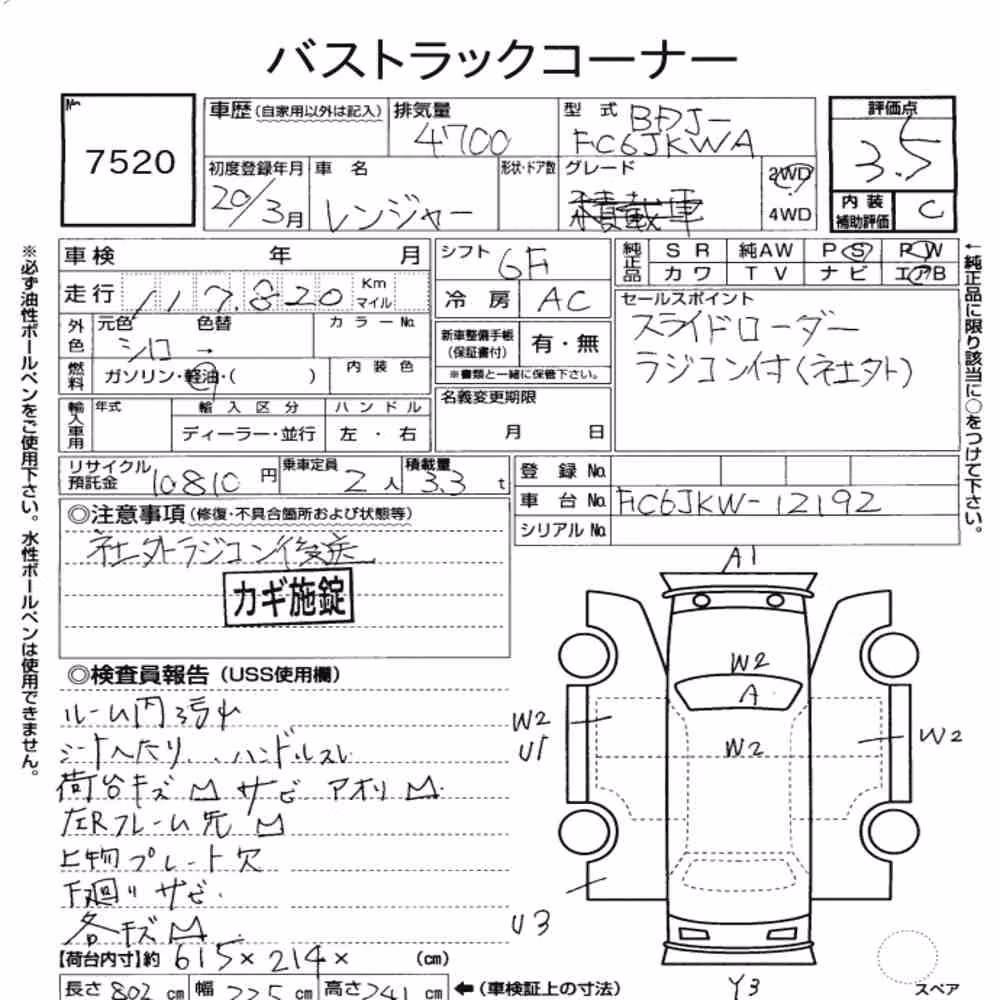 バストラックコーナー
No.
7520
車歴(自家用以外は記入)
排気量
4700
型式 BDJ-
FC6JKWA
評価点
3.5
初度登録年月
20/3月
車名
レンジャー
形状・ドア数
グレード
積載車
2WD
4WD
内装
補助評価
C
車検 年 月
走行 117,820 Km
マイル
外色
元色 色替
シロ →
カラーNo.
燃料
ガソリン・軽油・( )
内装色
輸入車用
年式
輸入区分
ディーラー・並行
ハンドル
左・右
シフト
6F
冷房 AC
新車整備手帳
(保証書付)
有・無
※書類と一緒に保管下さい。
名義変更期限
月 日
純正品
SR 純AW PS PW
カワ TV ナビ エアB
セールスポイント
スライドローダー
ラジコン付(社外)
リサイクル
預託金
10810円
乗車定員
2人
積載量
3.3t
登録No.
車台No. FC6JKW-12192
シリアルNo.
◎注意事項(修復・不具合箇所および状態等)
社外ラジコン後送
カギ施錠
◎検査員報告(USS使用欄)
ルーム内汚小
シートへたり、ハンドルスレ
荷台キズ凹 サビ アオリ凹
左Rフレーム先凹
上物プレート欠
下廻りサビ
各キズ凹
【荷台内寸】約 615×214× (cm)
長さ 802 cm 幅 225 cm 高さ 241 cm
←(車検証上の寸法)
A1
W2
A
W2
W2
U1
W2
U3
Y3
スペア
※必ず油性ボールペンをご使用下さい。水性ボールペンは使用できません。
←純正品に限り該当に○をつけて下さい。